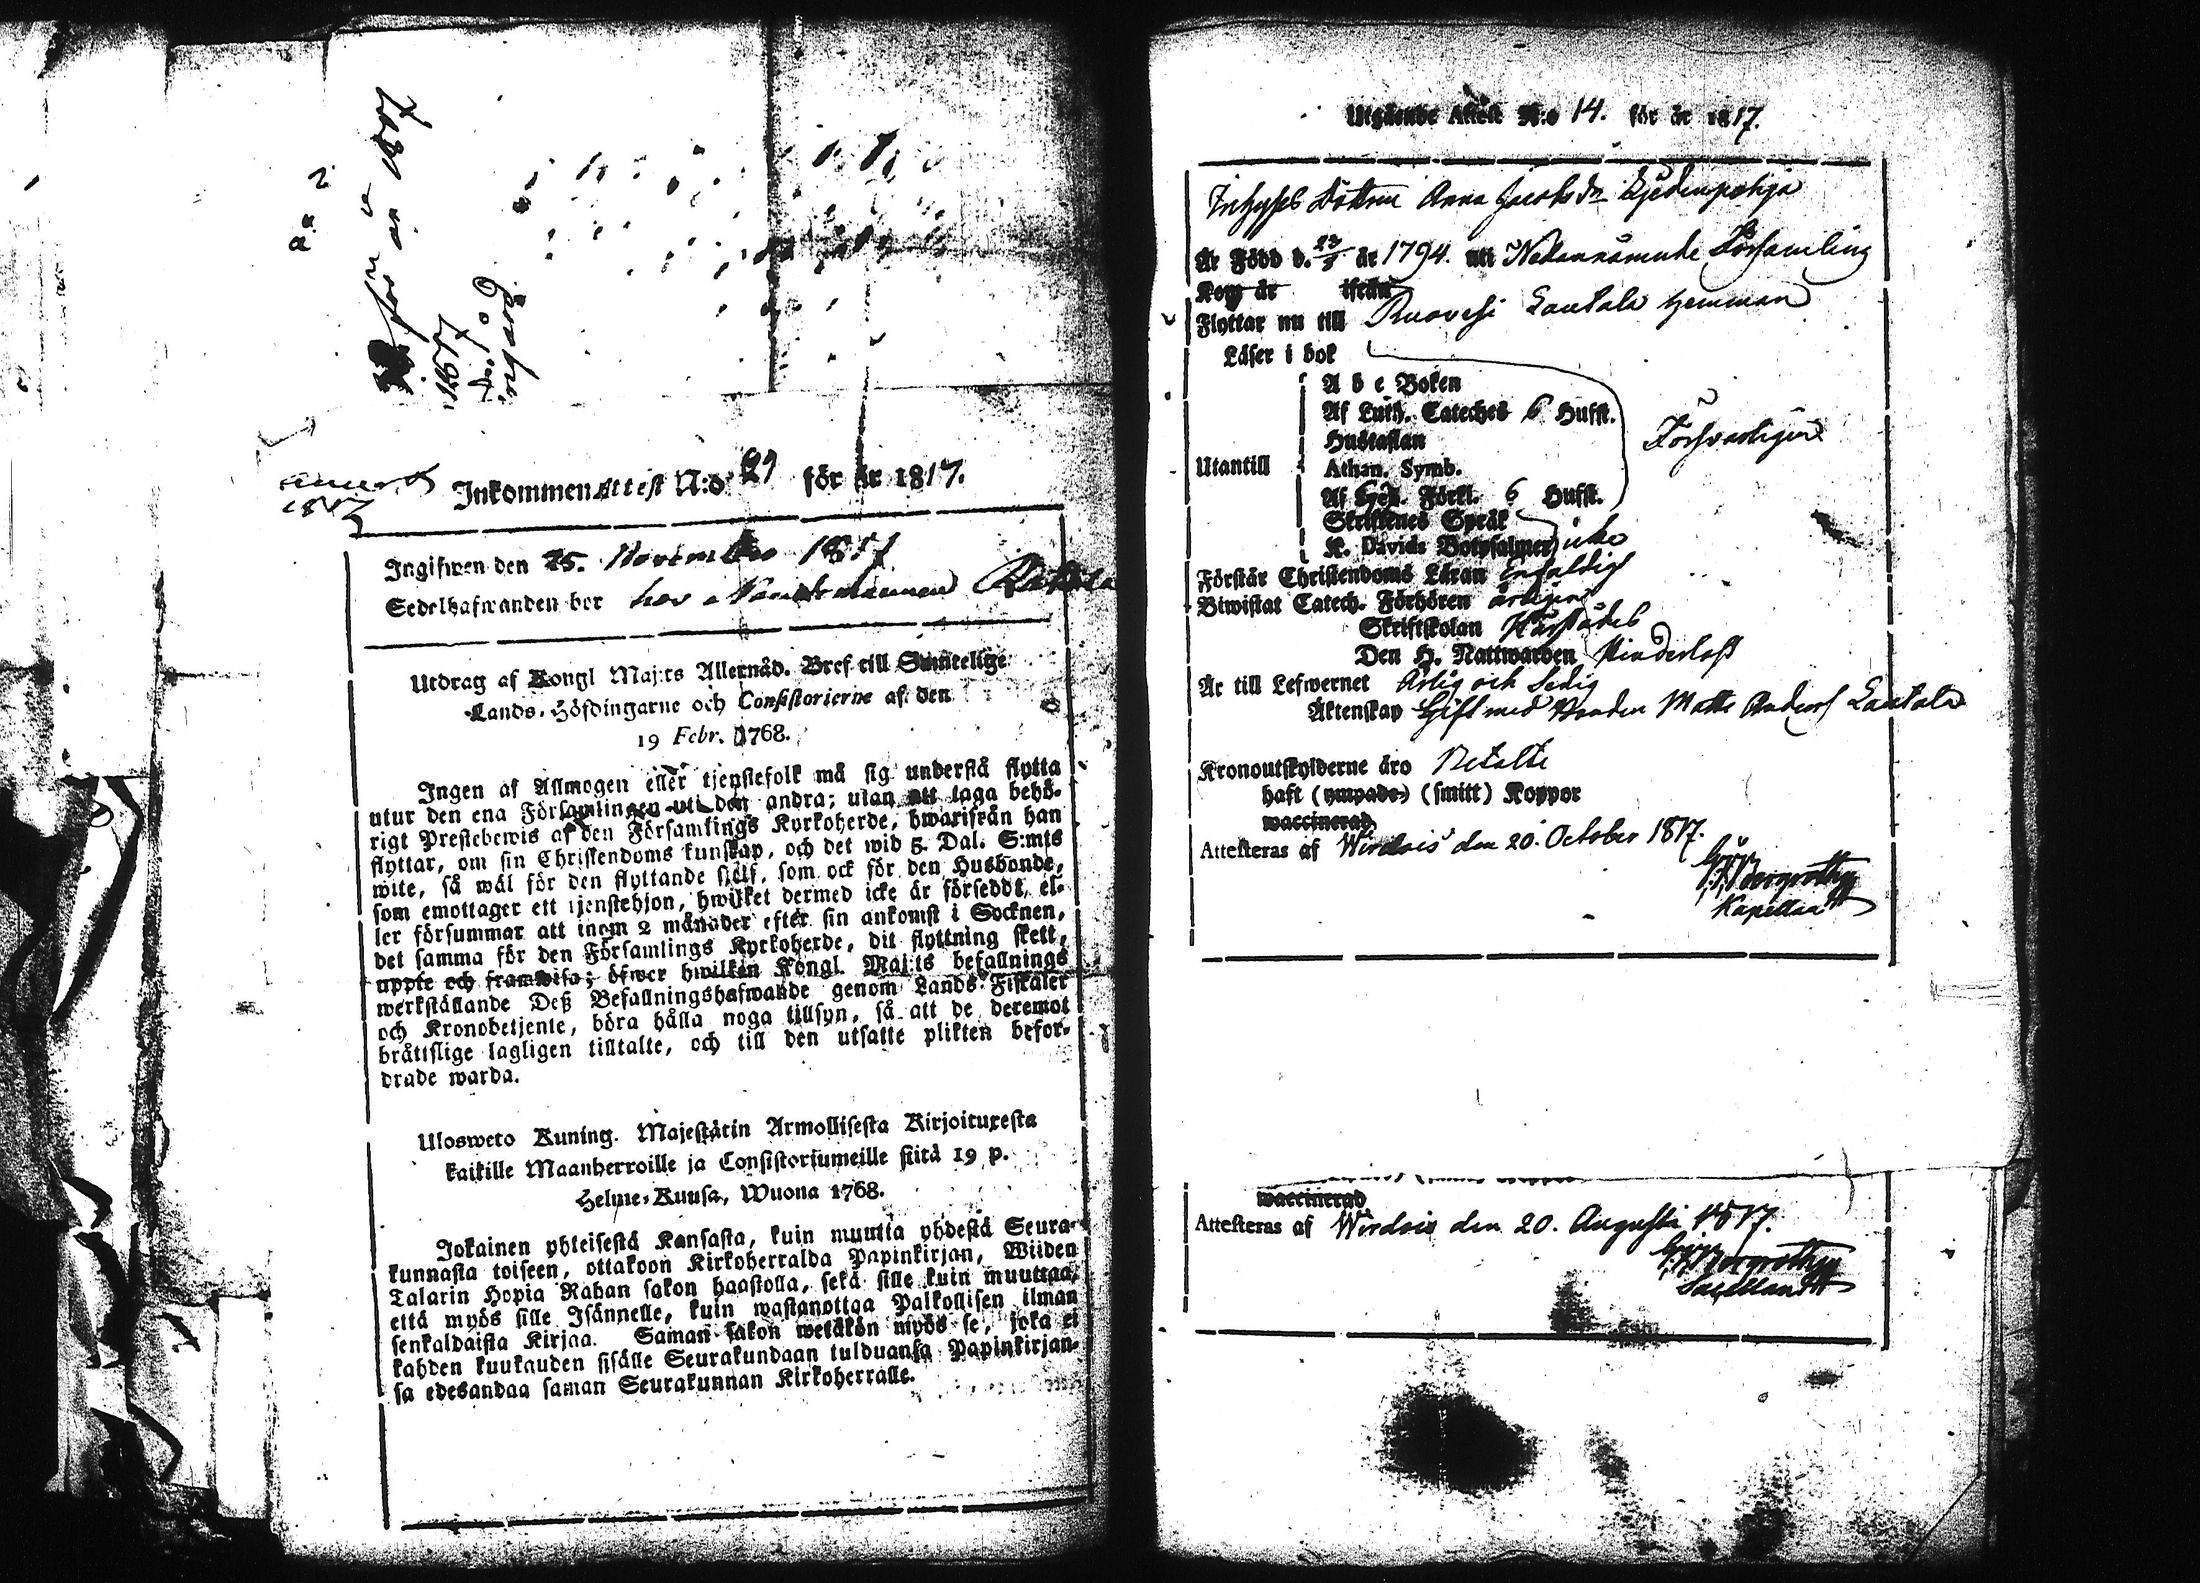 för år 1807
1817
Inkommen attest N:o 29 för år 1817.
Ingifwen den 25. November 1817
Sedelhafwanden bor hos Nämndemannen
Utdrag af Kongl Maj:ts Allernåd. Bref till Samtelige
Lands-Höfdingarne och Consistorierne af den
19 Febr. 1768.
Ingen af Allmogen eller tjenstefolk må sig understå flytta
utur den ena Församlingen uti den andra; utan att taga behö-
rigt Prestebewis af den Församlings Kyrkoherde, hwarifrån han
flyttar, om sin Christendoms kunskap, och det wid 5. Dal. S:mts
wite, så wäl för den flyttande sjelf, som ock för den Husbonde,
som emottager ett tjenstehjon, hwilket dermed icke är försedt, el-
ler försummar att inom 2 månader efter sin ankomst i Socknen,
det samma för den Församlings Kyrkoherde, dit flyttning skett,
uppte och framwisa; öfwer hwilken Kongl. Maj:ts befallnings
werkställande Deß Befallningshafwande genom Lands-Fiskaler
och Kronobetjente, böra hålla noga tillsyn, så att de deremot
bråttslige lagligen tilltalte, och till den utsatte plikten befor-
drade warda.
Ulosweto Kuning. Majestätin Armollisesta Kirjoituxesta
kaikille Maanherroille ja Consistoriumeille siitä 19 p.
Helme-Kuusa, Wuona 1768.
Jokainen yhteisestä Kansasta, kuin muutta yhdestä Seura-
kunnasta toiseen, ottakoon Kirkoherralda Papinkirjan, Wiiden
Talarin Hopia Rahan sakon haastolla, sekä sille kuin muuttaa,
että myös sille Isännelle, kuin wastanottaa Palkollisen ilman
senkaldaista Kirjaa. Saman sakon wetäkön myös se, joka ei
kahden kuukauden sisälle Seurakundaan tulduansa Papinkirjan-
sa edesandaa saman Seurakunnan Kirkoherralle.
Utgående Attest N:o 14. för år 1817.
Inhyses Dottren Anna Jacobsdr
Är Född d. 23/3 år 1794. uti Nedannämnde Församling
Kom år ifrån
Flyttar nu till Ruovesi Lautala hemman
Läser i bok
A b c Boken
Af Luth. Cateches 6 Hufst.
Hustaflan
Utantill Athan. Symb. Försvarligen
Af Förkl. 6 Hufst.
Skriftenes Språk
K. Davids Botpsalmer icke
Förstår Christendoms Läran Enfaldigt
Biwistat Catech. Förhören årligen
Skriftskolan Härstädes
Den H. Nattwarden Hinderlöst
Är till Lefwernet Ärlig och Sedig
Äktenskap Gift med Bonden Matts Anders Lautala
Kronoutskylderne äro Betalte
haft (ympade) (smitt) Koppor
waccinerad
Attesteras af Wirdois den 20. October 1817.
Kapellan
waccinerad
Attesteras af Wirdois den 20. Augusti 1817.